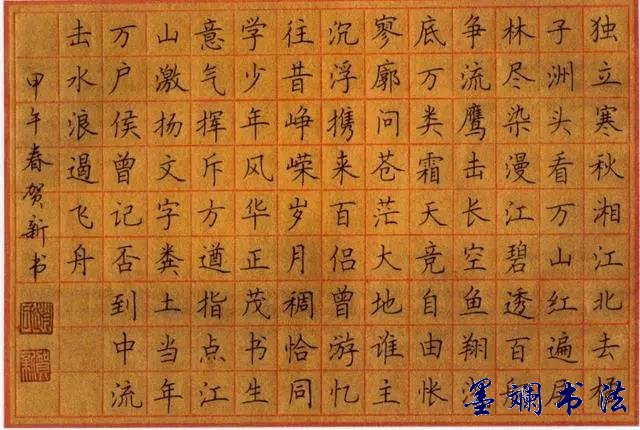 独立寒秋湘江北去
子洲头看万山红遍层
林尽染漫江碧透百舸
争流鹰击长空鱼翔浅
底万类霜天竞自由怅
寥廓问苍茫大地谁主
沉浮携来百侣曾游忆
往昔峥嵘岁月稠恰同
学少年风华正茂书生
意气挥斥方遒指点江
山激扬文字粪土当年
万户侯曾记否到中流
击水浪遏飞舟
甲午春贺新书
墨斓书法